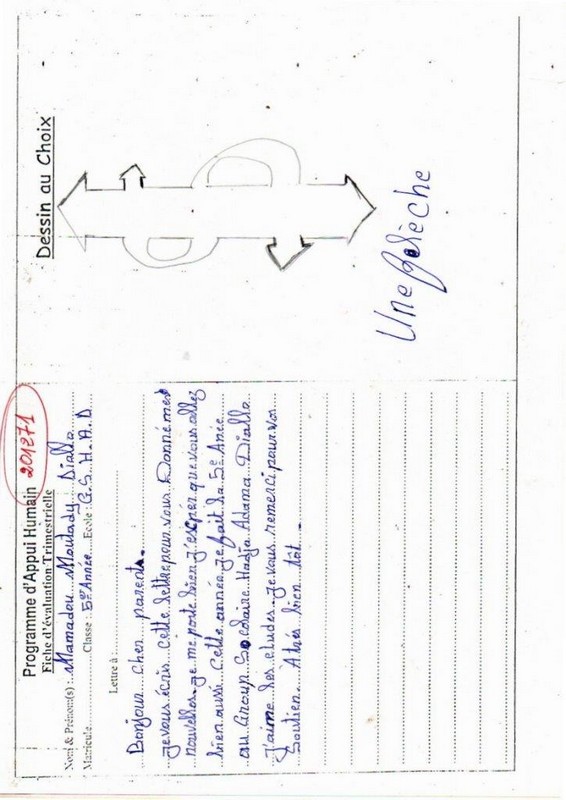 Programme d'Appui Humain 201271
Fiche d'évaluation Trimestrielle
Nom & Prénom(s) : Mamadou Moulady Diallo
Matricule Classe : 5e Année Ecole : G.S.H.A.D
Lettre à :
Bonjour cher parent.
je vous écris cette lettre pour vous Donné mes
nouvelles. je me porte bien j'espér que vous allez
bien aussi. Cette année je fait la 5e Anée
au Group Scolaire Hadja Adama Diallo
J'aime les etudes. je vous remerci pour vos
Soutien. À trés bien tôt.
Dessin au Choix
Une